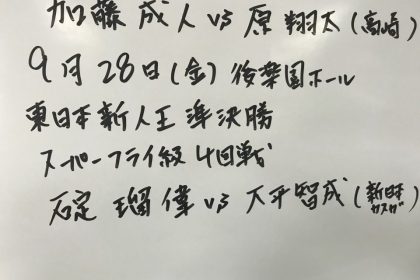 加藤 成人 vs 原 翔太(高崎)
9月28日(金) 後楽園ホール
東日本新人王 準決勝
スーパーフライ級 4回戦
石定 瑠偉 vs 大平智成(新日本カスガ)